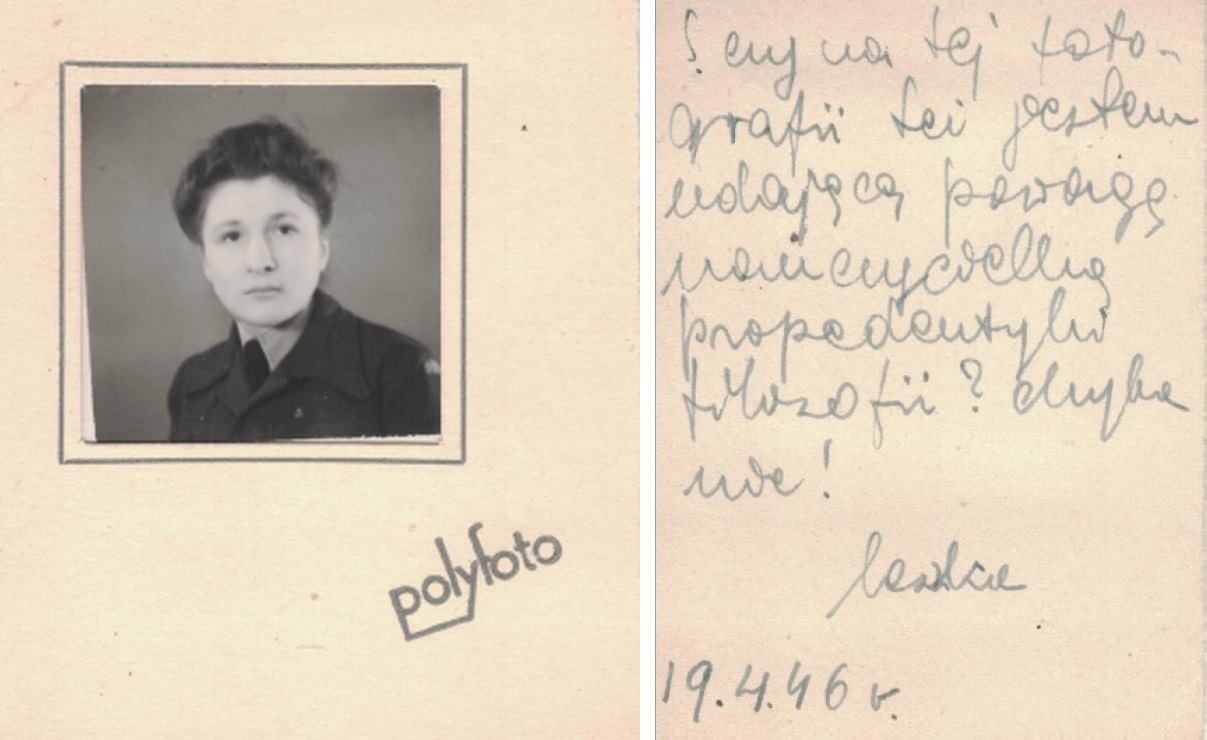 polyfoto
? czy na tej foto-
grafii też jestem
udającą powagę
nauczycielką
propedeutyki
filozofii? chyba
nie!
19.4.46 r.